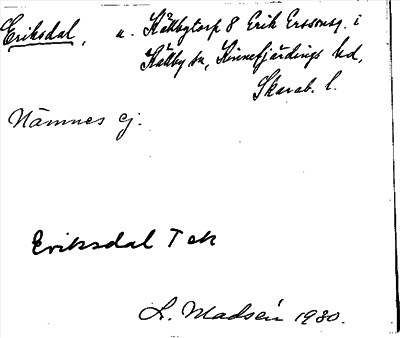 Eriksdal, u. Källbytorp 8 Erik Erssonsg. i
Källby sn, Kinnefjärdings hd,
Skarab. l.
Nämnes ej.
Eriksdal Tek
L. Madsén 1930.